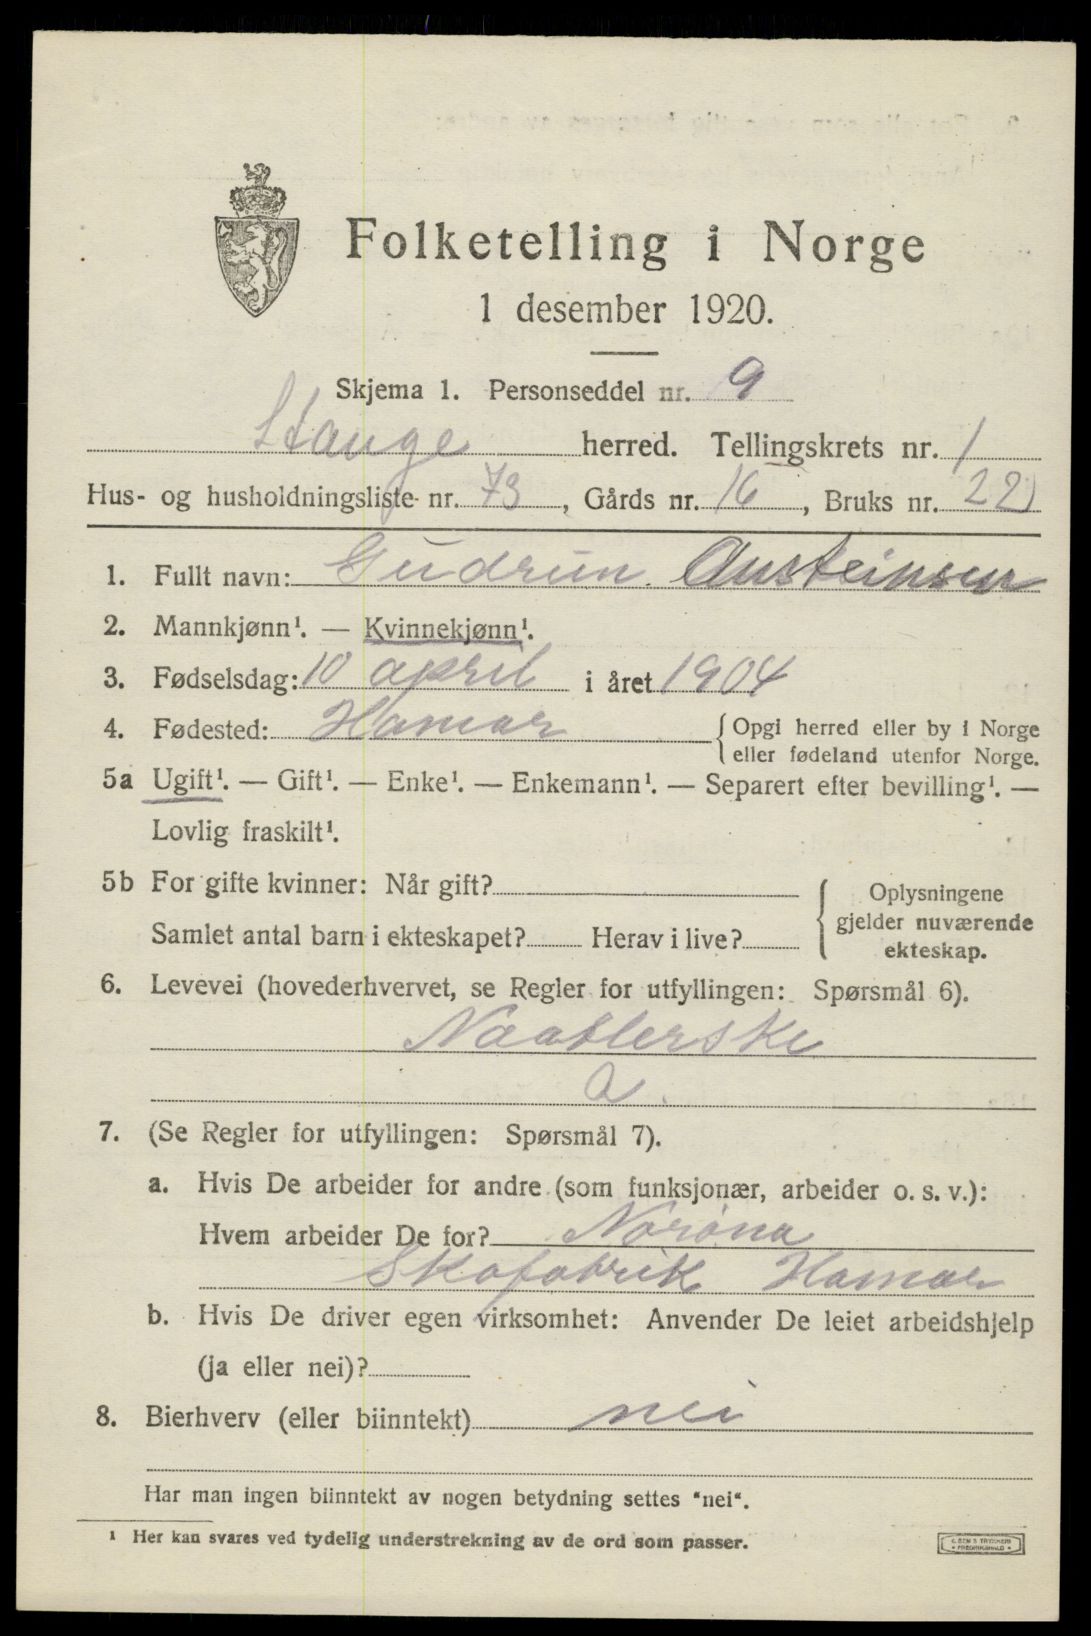 Folketelling i Norge
1 desember 1920.
Skjema 1. Personseddel nr. 9
Stange herred. Tellingskrets nr. 1
Hus- og husholdningsliste nr. 73, Gårds nr. 16, Bruks nr. 22
1. Fullt navn: Gudrun Austeinsen
2. Mannkjønn¹. — Kvinnekjønn¹.
3. Fødselsdag: 10 april i året 1904
4. Fødested: Hamar { Opgi herred eller by i Norge
eller fødeland utenfor Norge.
5a Ugift¹. — Gift¹. — Enke¹. — Enkemann¹. — Separert efter bevilling¹. —
Lovlig fraskilt¹.
5b For gifte kvinner: Når gift?
Samlet antal barn i ekteskapet? Herav i live?
{ Oplysningene
gjelder nuværende
ekteskap.
6. Levevei (hovederhvervet, se Regler for utfyllingen: Spørsmål 6).
Naatlerske
a.
7. (Se Regler for utfyllingen: Spørsmål 7).
a. Hvis De arbeider for andre (som funksjonær, arbeider o. s. v.):
Hvem arbeider De for? Norøna
Skofabrik Hamar
b. Hvis De driver egen virksomhet: Anvender De leiet arbeidshjelp
(ja eller nei)?
8. Bierhverv (eller biinntekt) nei
Har man ingen biinntekt av nogen betydning settes "nei".
¹ Her kan svares ved tydelig understrekning av de ord som passer.